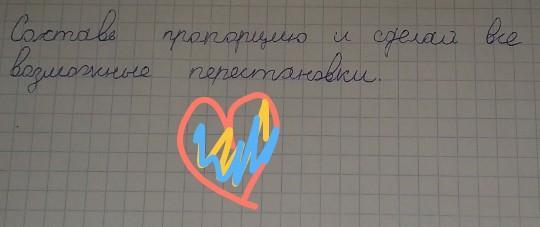 Составь пропорцию и сделай все
возможные перестановки.